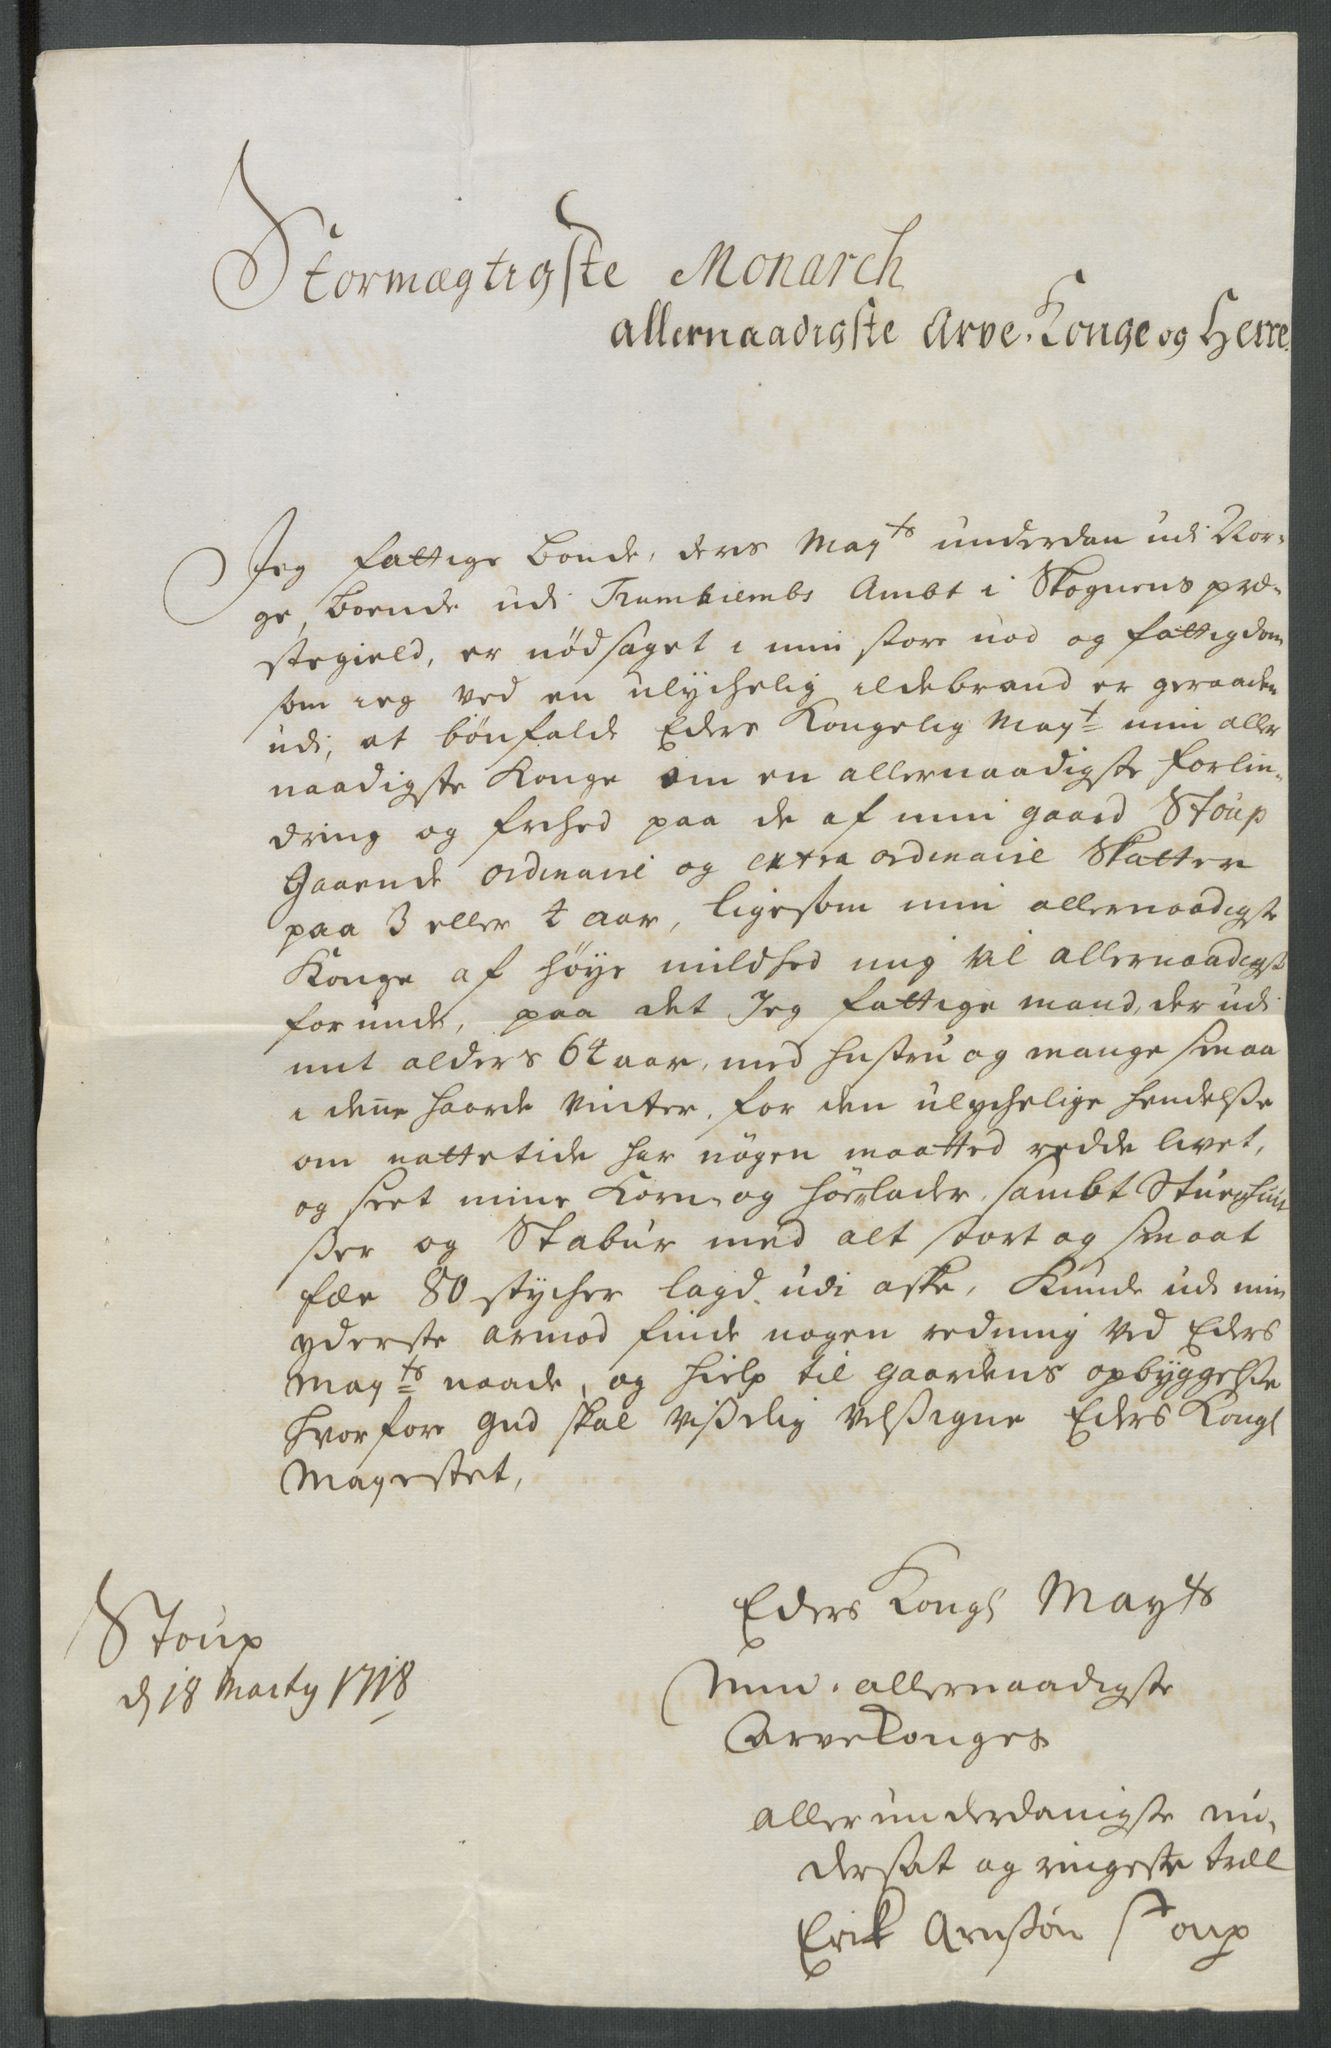 Stormægtigste Monarch
allernaadigste Arve-Konge og Herre.
Jeg fattige bonde, ders May^ts underdan udi Nor-
ge, boende udi Trumhiembs Ambt i Skognens præ-
stegield, er nödsaget i min store nød og fattigdom
som ieg ved en ulychelig ildebrand er geraaden
udi, at bönfalde Eders Kongelig May^t min aller
naadigste Konge om en allernaadigste forlin-
dring og frihed paa de af min gaard Stoup
Gaaende ordinaire og extra ordinaire Skatter
paa 3 eller 4 aar, ligesom min allernaadigste
Konge af høye mildhed mig vil allernaadigst
forunde, paa det Jeg fattige mand, der udi
mit alders 64 aar, med hustru og mange smaa
i deñe haarde vinter, for den ulychelige hendelsse
om nattetide har nögen maatted redde livet,
og seet mine Korn- og höe-lader, sambt Stuehuu-
sser og Stabur med alt stort og smaat
fæe 80 stycher lagd udi aske, Kunde udi min
yderste armod finde nogen redning ved Eders
May^ts naade, og hielp til gaardens opbyggelsse
hvorfore Gud skal visselig velssigne Eders Kongl
Mayestet,
Eders Kongl May^ts
Min allernaadigste
ArveKonges
Stoup
d 18 Marty 1718
allerunderdanigste un-
dersat og ringeste træl
Erik Arnssön Stoup